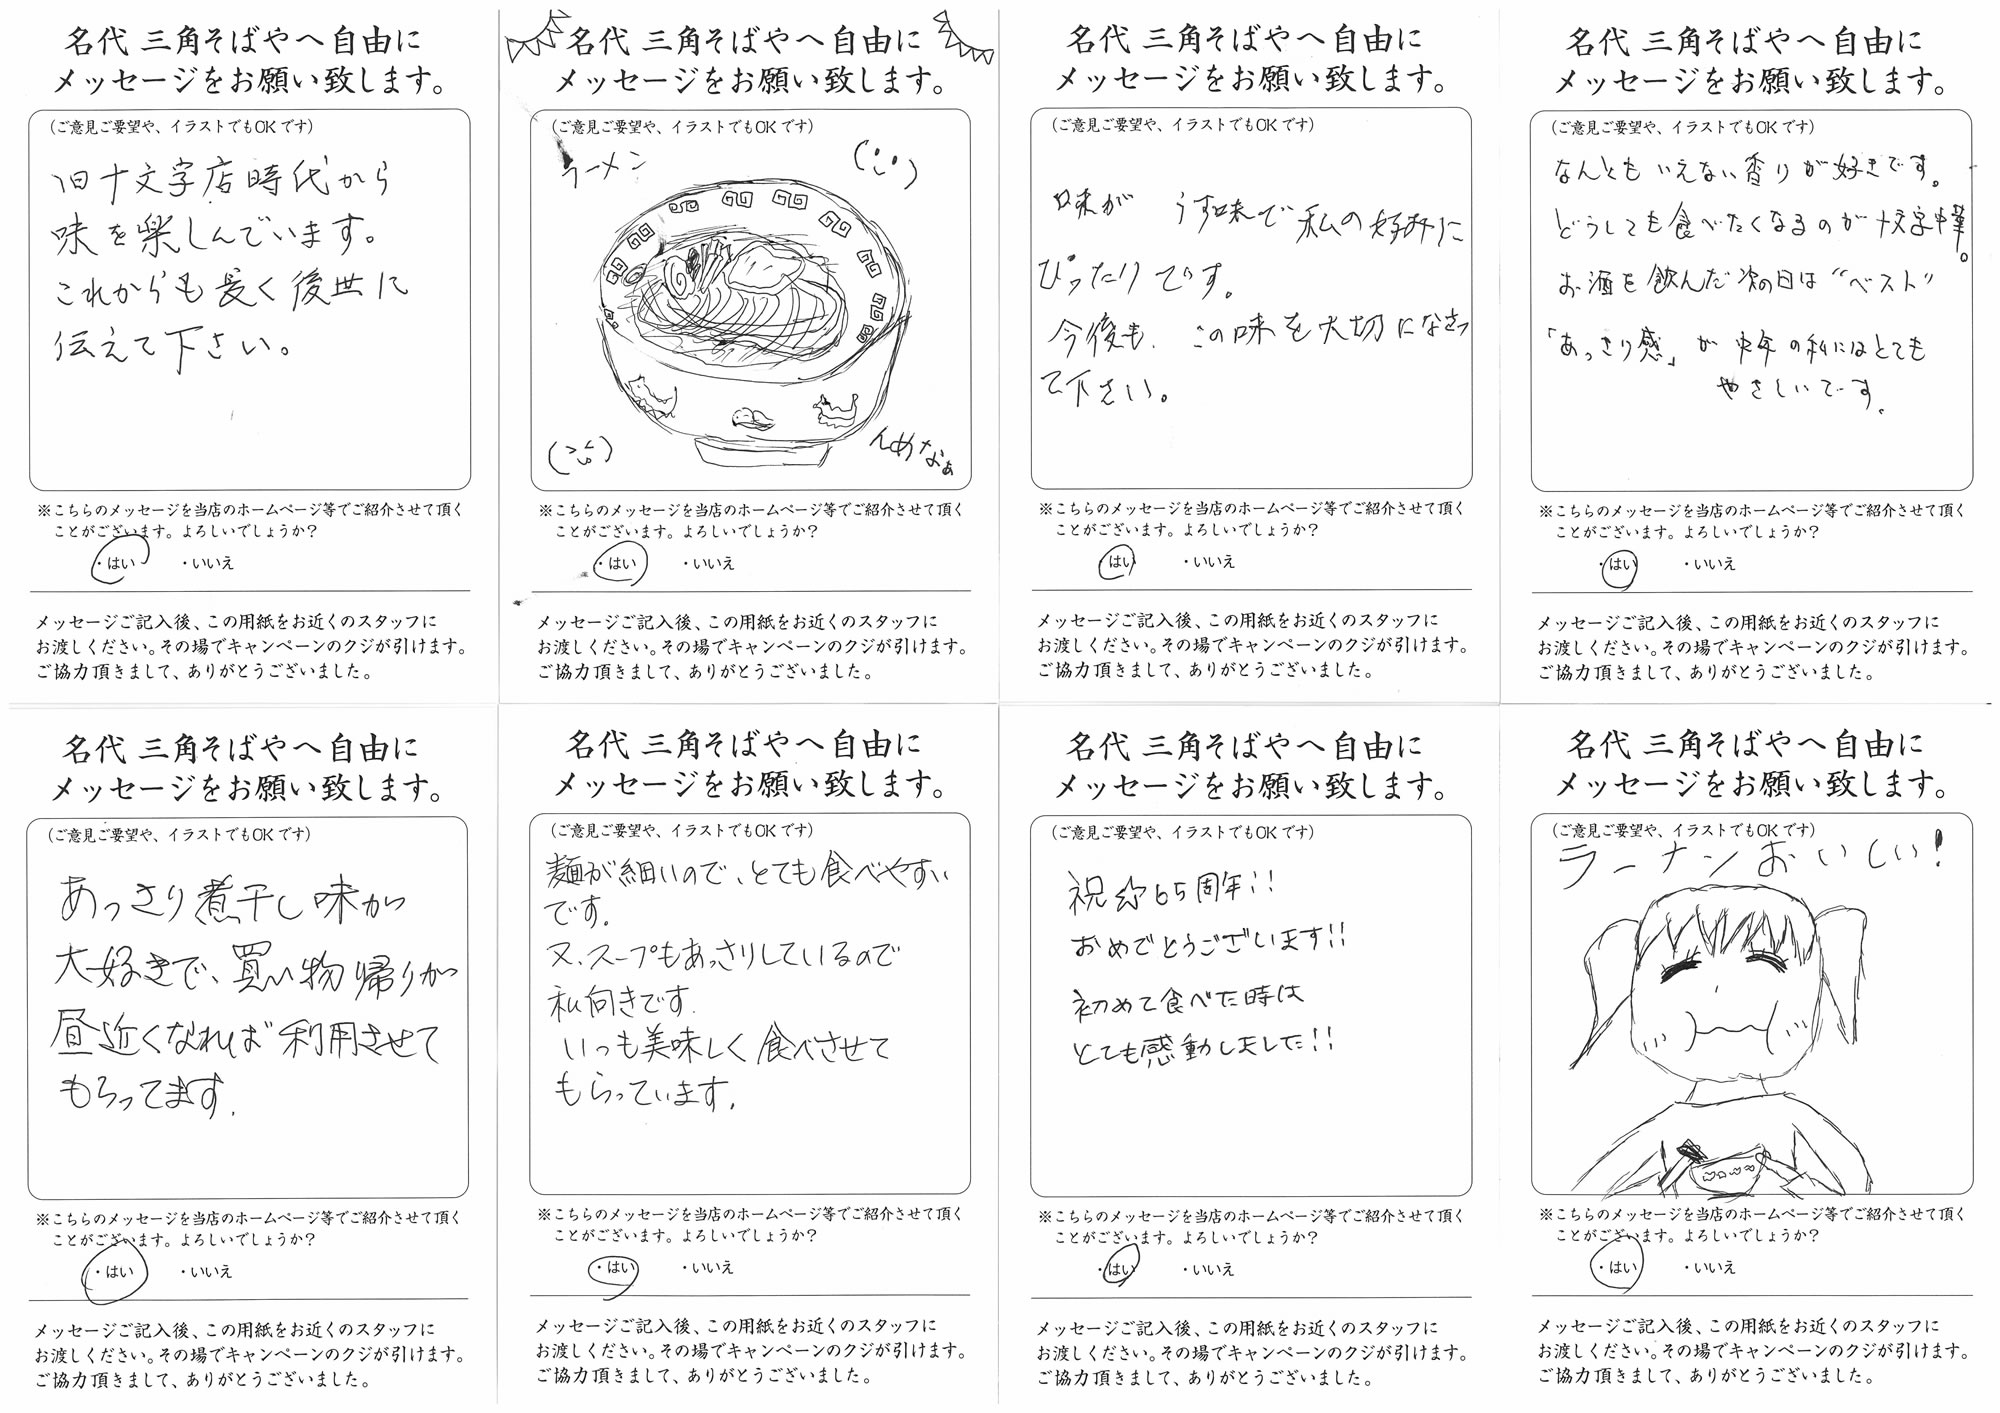 名代 三角そばやへ自由に
メッセージをお願い致します。
(ご意見ご要望や、イラストでもOKです)
旧十文字店時代から
味を楽しんでいます。
これからも長く後世に
伝えて下さい。
※こちらのメッセージを当店のホームページ等でご紹介させて頂く
ことがございます。よろしいでしょうか?
・はい ・いいえ
メッセージご記入後、この用紙をお近くのスタッフに
お渡しください。その場でキャンペーンのクジが引けます。
ご協力頂きまして、ありがとうございました。
名代 三角そばやへ自由に
メッセージをお願い致します。
(ご意見ご要望や、イラストでもOKです)
ラーメン
んめなぁ
※こちらのメッセージを当店のホームページ等でご紹介させて頂く
ことがございます。よろしいでしょうか?
・はい ・いいえ
メッセージご記入後、この用紙をお近くのスタッフに
お渡しください。その場でキャンペーンのクジが引けます。
ご協力頂きまして、ありがとうございました。
名代 三角そばやへ自由に
メッセージをお願い致します。
(ご意見ご要望や、イラストでもOKです)
味が うす味で私の好みに
ぴったりです。
今後も、この味を大切になさっ
て下さい。
※こちらのメッセージを当店のホームページ等でご紹介させて頂く
ことがございます。よろしいでしょうか?
・はい ・いいえ
メッセージご記入後、この用紙をお近くのスタッフに
お渡しください。その場でキャンペーンのクジが引けます。
ご協力頂きまして、ありがとうございました。
名代 三角そばやへ自由に
メッセージをお願い致します。
(ご意見ご要望や、イラストでもOKです)
なんともいえない香りが好きです。
どうしても食べたくなるのが十文字中華。
お酒を飲んだ次の日は“ベスト”
「あっさり感」が中年の私にはとても
やさしいです。
※こちらのメッセージを当店のホームページ等でご紹介させて頂く
ことがございます。よろしいでしょうか?
・はい ・いいえ
メッセージご記入後、この用紙をお近くのスタッフに
お渡しください。その場でキャンペーンのクジが引けます。
ご協力頂きまして、ありがとうございました。
名代 三角そばやへ自由に
メッセージをお願い致します。
(ご意見ご要望や、イラストでもOKです)
あっさり煮干し味が
大好きで、買い物帰りが
昼近くなれば利用させて
もらってます。
※こちらのメッセージを当店のホームページ等でご紹介させて頂く
ことがございます。よろしいでしょうか?
・はい ・いいえ
メッセージご記入後、この用紙をお近くのスタッフに
お渡しください。その場でキャンペーンのクジが引けます。
ご協力頂きまして、ありがとうございました。
名代 三角そばやへ自由に
メッセージをお願い致します。
(ご意見ご要望や、イラストでもOKです)
麺が細いので、とても食べやすい
です。
又、スープもあっさりしているので
私向きです。
いつも美味しく食べさせて
もらっています。
※こちらのメッセージを当店のホームページ等でご紹介させて頂く
ことがございます。よろしいでしょうか?
・はい ・いいえ
メッセージご記入後、この用紙をお近くのスタッフに
お渡しください。その場でキャンペーンのクジが引けます。
ご協力頂きまして、ありがとうございました。
名代 三角そばやへ自由に
メッセージをお願い致します。
(ご意見ご要望や、イラストでもOKです)
祝☆65周年!!
おめでとうございます!!
初めて食べた時は
とても感動しました!!
※こちらのメッセージを当店のホームページ等でご紹介させて頂く
ことがございます。よろしいでしょうか?
・はい ・いいえ
メッセージご記入後、この用紙をお近くのスタッフに
お渡しください。その場でキャンペーンのクジが引けます。
ご協力頂きまして、ありがとうございました。
名代 三角そばやへ自由に
メッセージをお願い致します。
(ご意見ご要望や、イラストでもOKです)
ラーナンおいしい!
※こちらのメッセージを当店のホームページ等でご紹介させて頂く
ことがございます。よろしいでしょうか?
・はい ・いいえ
メッセージご記入後、この用紙をお近くのスタッフに
お渡しください。その場でキャンペーンのクジが引けます。
ご協力頂きまして、ありがとうございました。